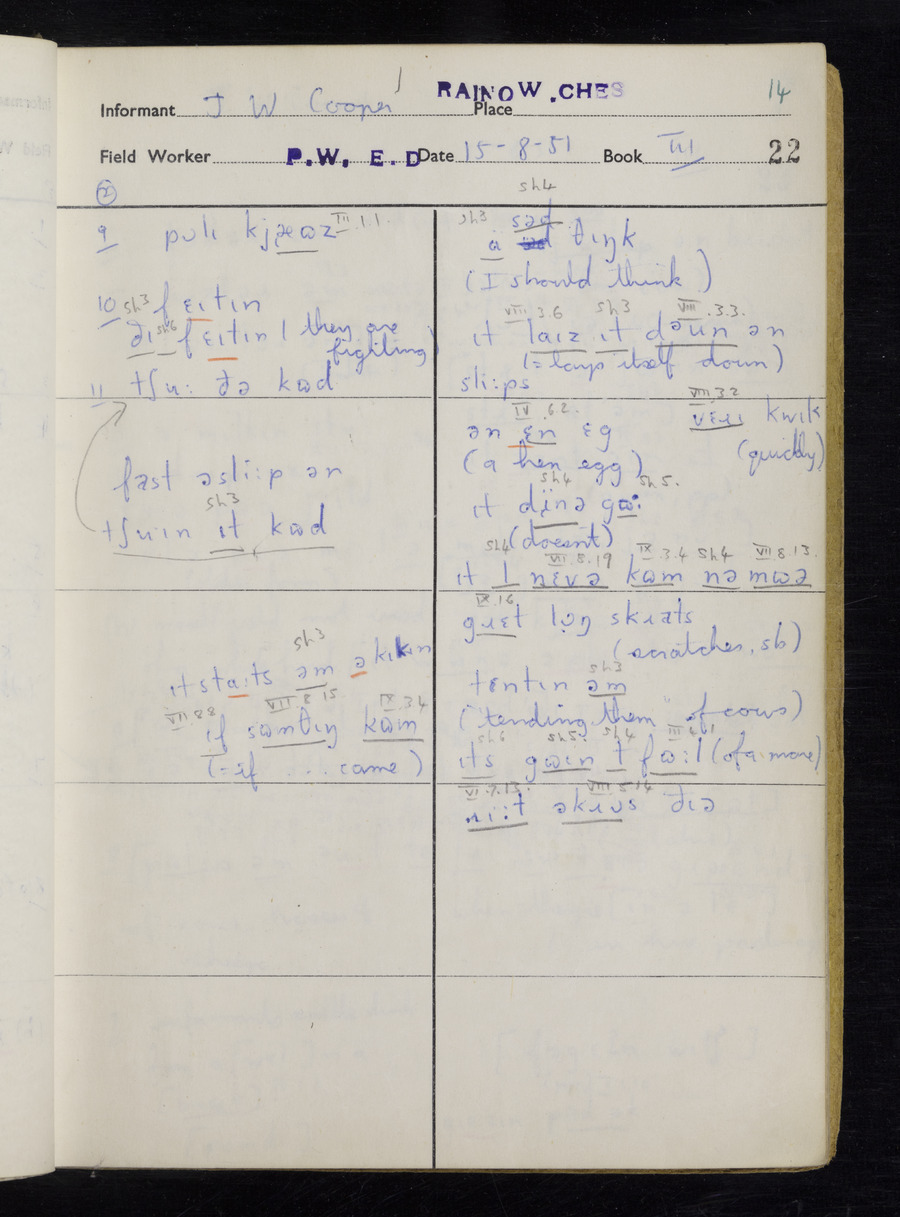 RAINOW .CHES
14
Informant J W Cooper Place
Field Worker P.W. E. D Date 15-8-51 Book III 22
2
9 pulɪ kjæʊz III.1.1.
10 sh3 fɛɪtɪn
ðɪ sh6 fɛɪtɪn | they are
fighting
11 tʃu: ðə kʊd
fast əsli:p ən
sh3
tʃuɪn ɪt kʊd
sh3
ɪt sta:ts əm ə kɪkɪn
VII.8.8 VII 8 15. IX.3.4
if sʊmθɪŋ kʊm
(= if ... came)
sh4
sh3 səd
a θɪŋk
(I should think)
VIII 3.6 sh3 VIII .3.3.
ɪt laɪz ɪt dəun ən
(= lays itself down)
sli:ps
VIII 3.2
IV .6 2. vɛɹɪ kwɪk
ən ɛn ɛg (quickly)
(a hen egg)
sh4 sh5.
ɪt dɪnə gʊ:
sh4 (doesnt) VII.8.19 IX 3.4 sh4 VII 8.13.
ɪt nɛvə kʊm nə mʊə
IX.16
gɹɛt lɒŋ skɹats
(scratches, sb)
sh3
tɛntɪn əm
("tending them" of cows)
sh6 sh5. sh4 III
ɪts gʊɪn t fʊ:l (of a mare)
VI.7.13. VIII 5 14
ɹi:t əkɹʊs ðɪə